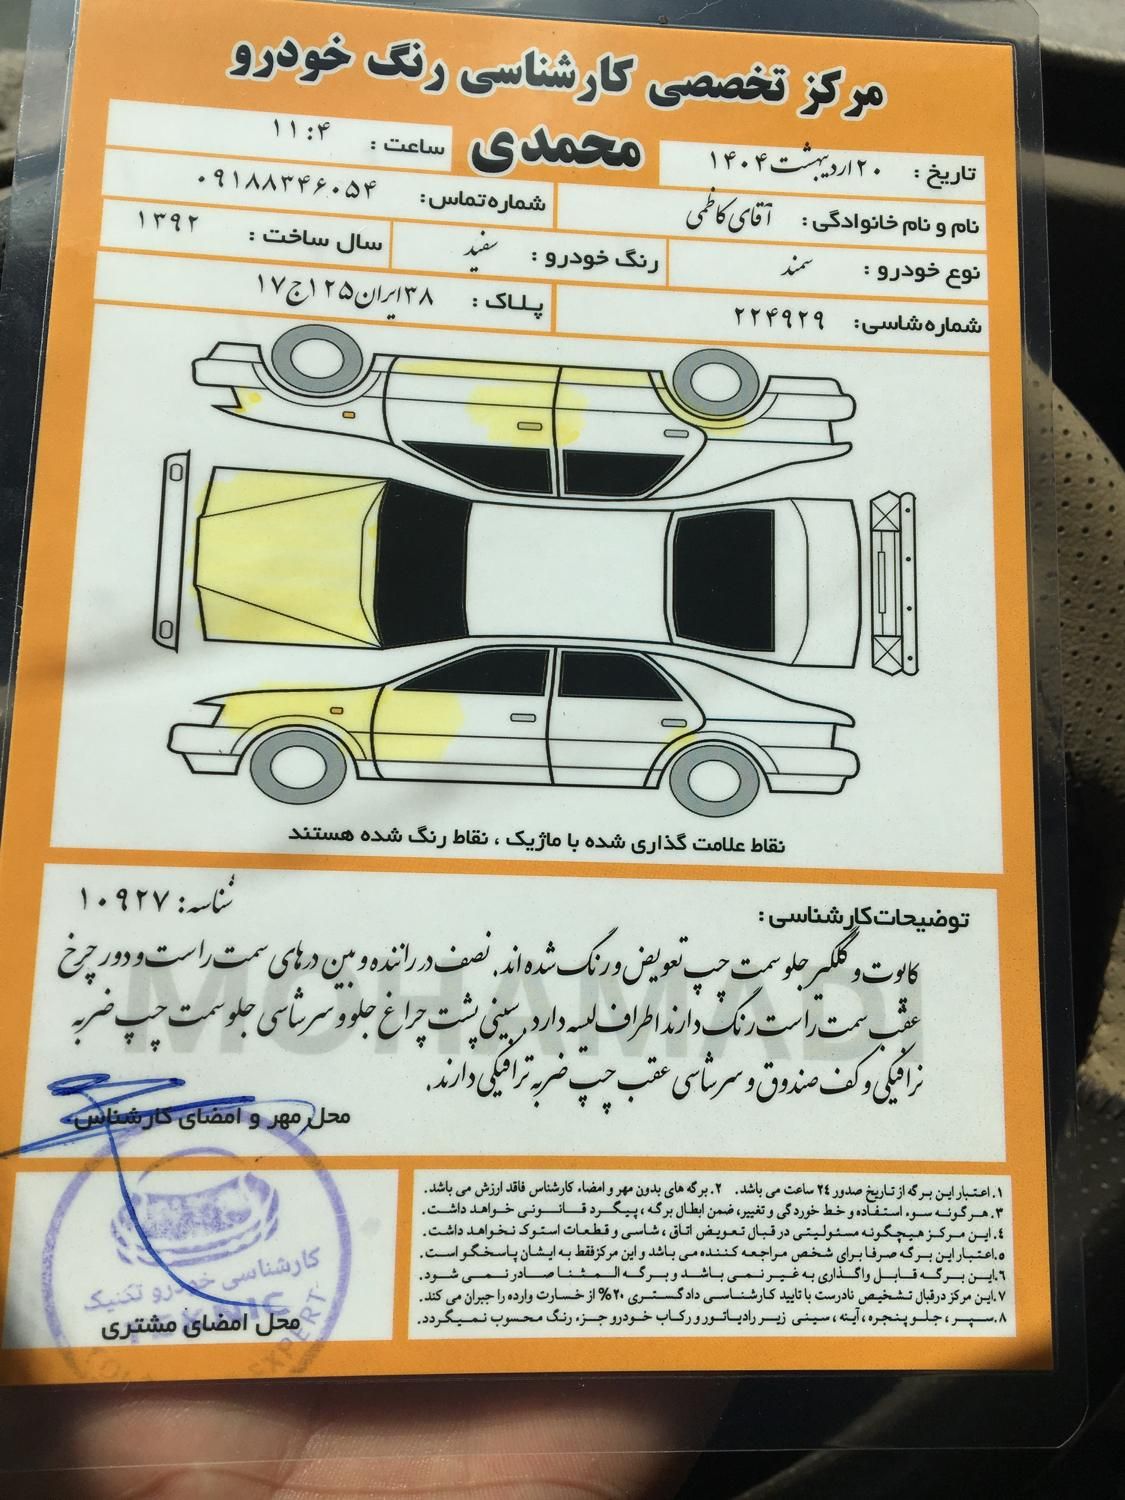 مرکز تخصصی کارشناسی رنگ خودرو
محمدی
تاریخ : ۲۰ اردیبهشت ۱۴۰۴
ساعت : ۱۱:۴
نام و نام خانوادگی : آقای کاظمی
شماره تماس: ۰۹۱۸۸۳۴۶۰۵۴
نوع خودرو : سمند
رنگ خودرو : سفید
سال ساخت : ۱۳۹۲
شماره شاسی: ۲۲۴۹۲۹
پلاک : ۳۸ایران۱۲۵ج۱۷
نقاط علامت گذاری شده با ماژیک ، نقاط رنگ شده هستند
توضیحات کارشناسی :
شناسه: ۱۰۹۲۷
کاپوت و گلگیر جلو سمت چپ تعویض و رنگ شده اند. نصف در راننده و بین درهای سمت راست و دور چرخ
عقب سمت راست رنگ دارند اطراف لیسه دارد. سینی پشت چراغ جلو و سر شاسی جلو سمت چپ ضربه
ترافیکی و کف صندوق و سر شاسی عقب چپ ضربه ترافیکی دارند.
MOHAMADI
محل مهر و امضای کارشناس
کارشناسی خودرو تکنیک
محل امضای مشتری
EXPERT
۱. اعتبار این برگه از تاریخ صدور ۲۴ ساعت می باشد. ۲. برگه های بدون مهر و امضاء کارشناس فاقد ارزش می باشد.
۳. هرگونه سوء استفاده و خط خوردگی و تغییر، ضمن ابطال برگه ، پیگرد قانونی خواهد داشت.
۴. این مرکز هیچگونه مسئولیتی در قبال تعویض اتاق ، شاسی و قطعات استوک نخواهد داشت.
۵. اعتبار این برگه صرفا برای شخص مراجعه کننده می باشد و این مرکز فقط به ایشان پاسخگو است.
۶. این برگه قابل واگذاری به غیر نمی باشد و برگه المثنا صادر نمی شود.
۷. این مرکز در قبال تشخیص نادرست با تایید کارشناسی دادگستری ۲۰% از خسارت وارده را جبران می کند.
۸. سپر ، جلو پنجره ، آینه ، سینی زیر رادیاتور و رکاب خودرو جزء رنگ محسوب نمیگردد.